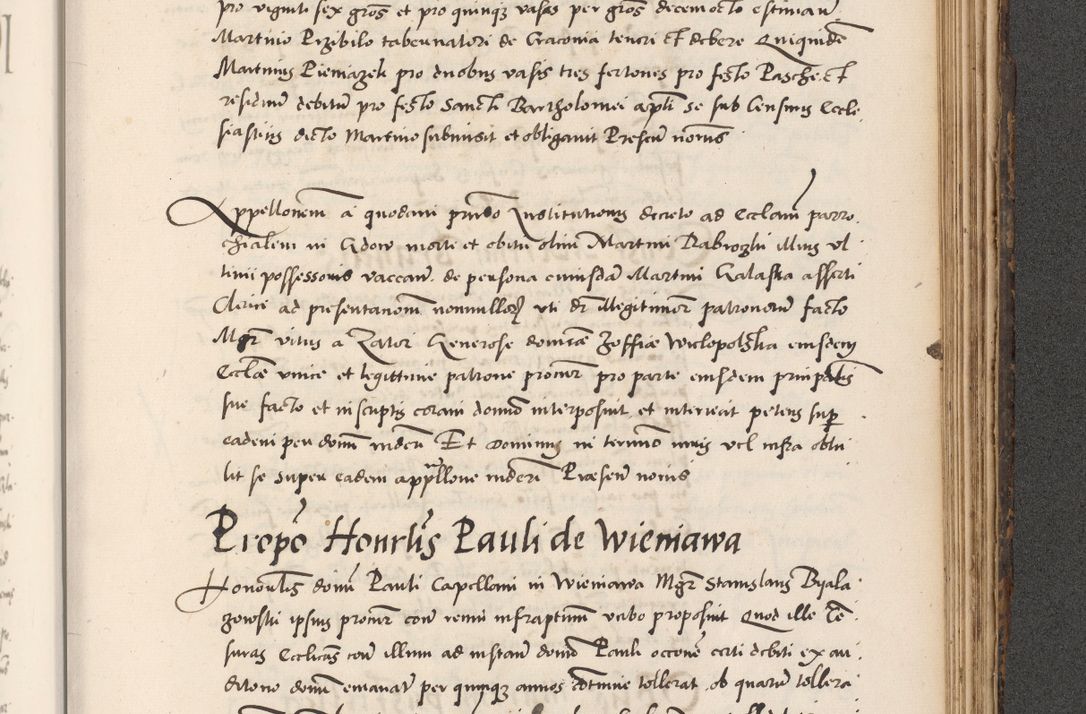 pro viginti sex gros et pro quinqz vasis per gros decem octo estimatis
Martino Przibilo tabernatori de Cracovia teneri et debere Quiquidem
Martinus Pieniazek pro duobus vasis tres fertones pro festo Pasche et
residuum debitum pro festo Sancti Bartholomei apli se sub Censuris Eccle
siasticis dicto Martino submisit et obligavit Presen nonis
Appellonem a quodam pnso Institutionis decreto ad Ecclam parro
chialem in Gdow morte et obitu olim Martini Dabrozki illius ul
timi possessoris vacan de persona eiusdam Martini Galaska asserti
Clerici ad presentationem nonnulloru uti dr illegitimor patronorum facto
Mgr vitus a Zator Generose dominae Zoffiae Wielopolska eiusdem
Ecclae unice et legittime patrone procur pro parte eiusdem principalis
sue facto et in scriptis coram domino interposuit et intericcit petens super
eadem per domi videri Et Dominus in termino iuris vel infra obtu
lit se super eadem appellone videri Praesen nonis
Propo Honrlis Pauli de Wieniawa
Honorlis domi Pauli Capellani in Wieniawa Mgr Stanislaus Byala
zowski ipsius procur cora remi infrascriptum verbo proposuit Quod ille Cen
suras Ecclicas cora illum ad instan domi Pauli occone certi debiti ex au
ditorio domi emanat per quinqz annos continue tollerat ob quarum tollera